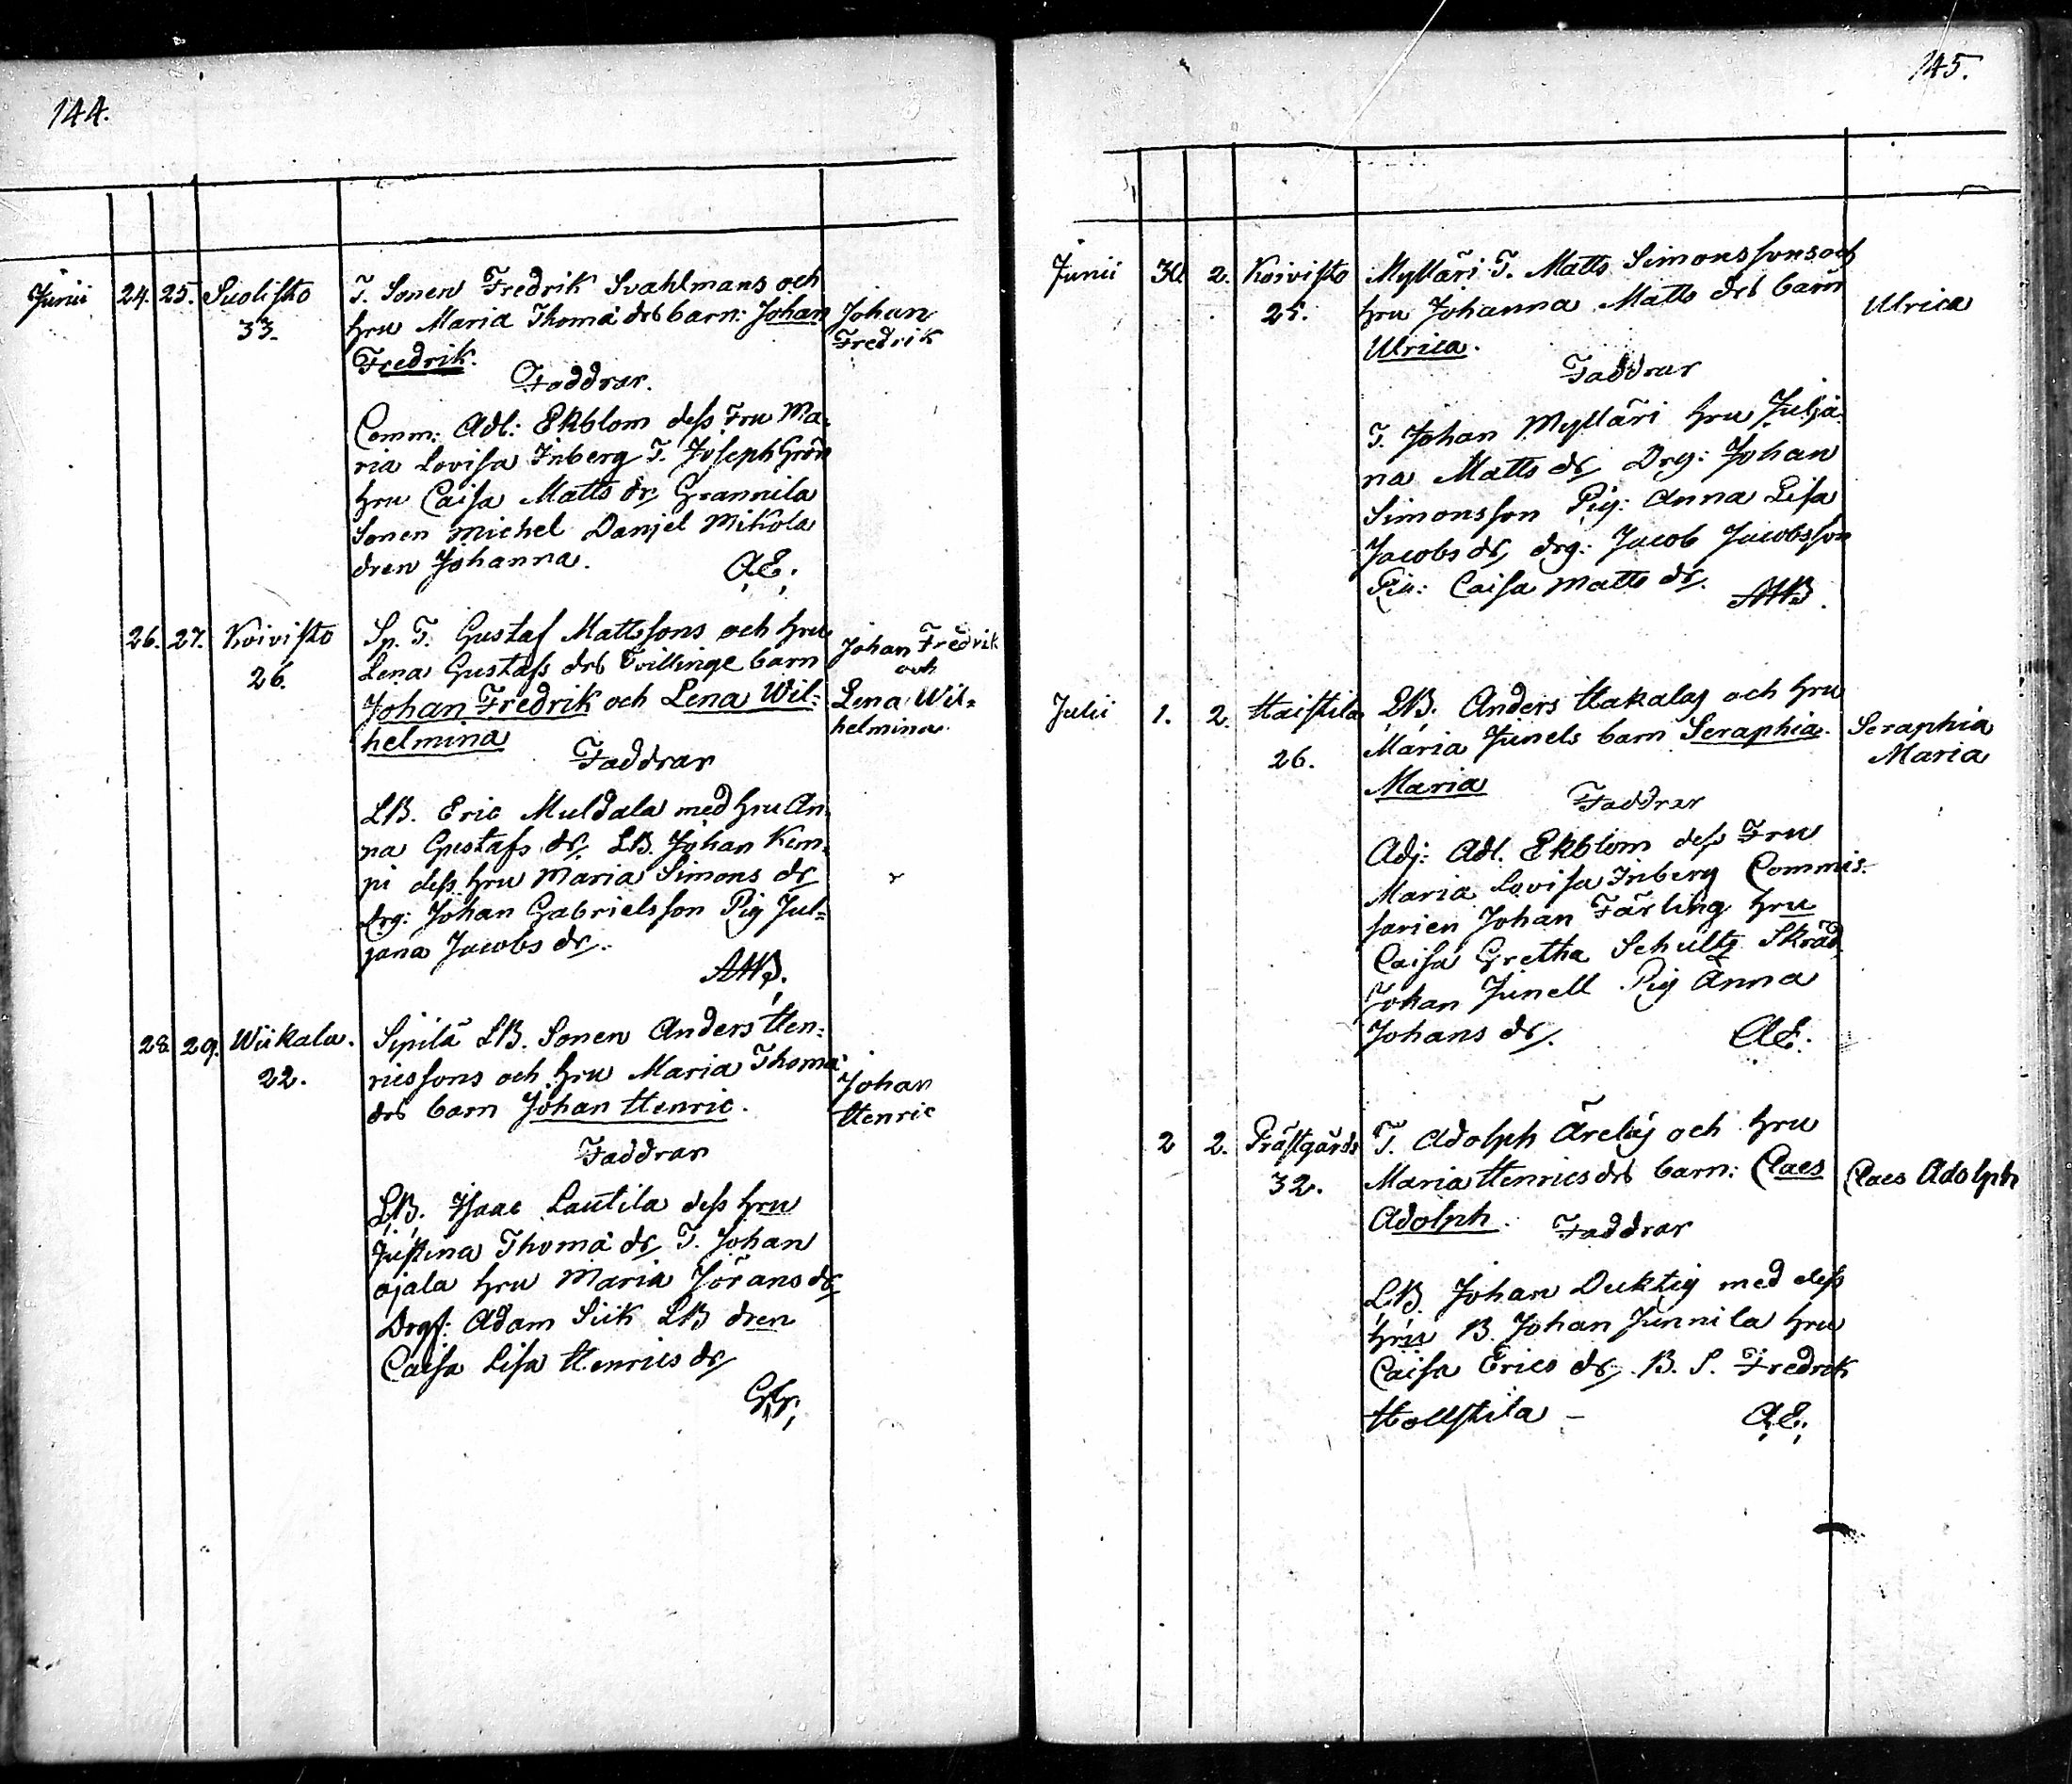 144.
Junii 24. 25. Suolisto T. Sonen Fredrik Svahlmans och
33. hru Maria Thomæ drs barn: Johan Johan
Fredrik. Fredrik
Faddrar.
Comm: Adl: Ekblom dess Fru Ma-
ria Lovisa Inberg T. Joseph Grön
hru Caisa Matts dr, Grannila
Sonen Michel Danjel Mikola
dren Johanna. A.E.
26. 27. Koivisto Sp. T. Gustaf Mattssons och hru Johan Fredrik
26. Lena Gustafs drs Tvillinge barn och
Johan Fredrik och Lena Wil- Lena Wil-
helmina helmina
Faddrar
LB. Eric Muldala med hru An-
na Gustafs dr, LB. Johan Kem-
pi dess hru Maria Simons dr
drg: Johan Gabrielsson Pig Jul-
jana Jacobs dr.
AHB.
28. 29. Wiikala. Sipilä LB. Sonen Anders Hen-
22. ricssons och hru Maria Thomæ Johan
drs barn Johan Henric. Henric
Faddrar
LB. Isaac Lautila dess hru
Justina Thomæ dr, T. Johan
ojala hru Maria Jörans dr
Drgs: Adam Siik LB dren
Caisa Lisa Henrics dr
145.
Junii 30. 2. Koivisto Mylläri T. Matts Simonssons och
25. hru Johanna Matts drs barn Ulrica
Ulrica.
Faddrar
T. Johan Mylläri hru Julja-
na Matts dr, Drg: Johan
Simonsson Pig: Anna Lisa
Jacobs dr, drg: Jacob Jacobsson
Pig: Caisa Matts dr.
AHB.
Julii 1. 2. Haistila LB. Anders Hakalas och hru
26. Maria Junels barn Seraphia Seraphia
Maria Maria
Faddrar
Adj: Adl. Ekblom dess Fru
Maria Lovisa Inberg Commis-
sarien Johan Färling hru
Caisa Gretha Schultz Skräd.
Johan Junell Pig Anna
Johans dr. A.E.
2 2. Prästgårds T. Adolph Ärelöf och hru
32. Maria Henrics drs barn: Claes Claes Adolph
Adolph. Faddrar
LB. Johan Duktig med dess
hru B. Johan Junnila hru
Caisa Erics dr, B. S. Fredrik
Hollstila – A.E.